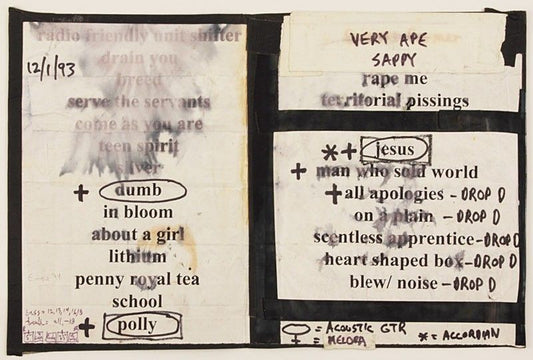 radio friendly unit shifter
drain you
12/1/93
breed
serve the servants
come as you are
teen spirit
sliver
+ dumb
in bloom
about a girl
lithium
penny royal tea
school
+ polly
VERY APE
SAPPY
rape me
territorial pissings
*+ jesus
+ man who sold world
+ all apologies - DROP D
on a plain - DROP D
scentless apprentice - DROP D
heart shaped box - DROP D
blew/ noise - DROP D
= ACOUSTIC GTR
+ = MELORA
* = ACCORDIAN